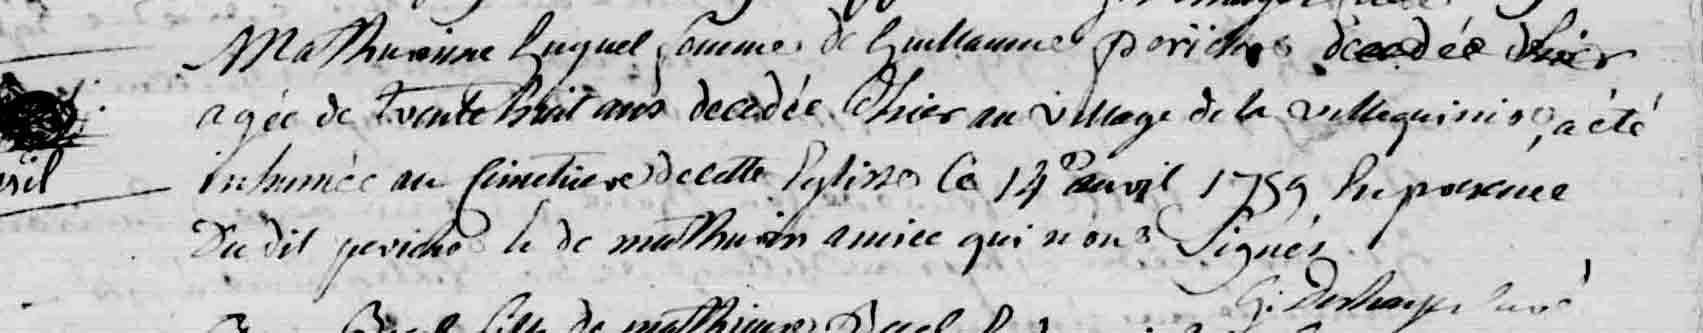 Mathurinne huquel femme de Guillaume periche decedée d'hier
agée de trente huit ans decedée d'hier au village de la villequinio, a été
inhumée au Cimetiere de cette Eglise Ce 14e avril 1759 En presence
Du dit periche & de mathurin amice qui n'ont Signés
G: Deshayes curé
vril